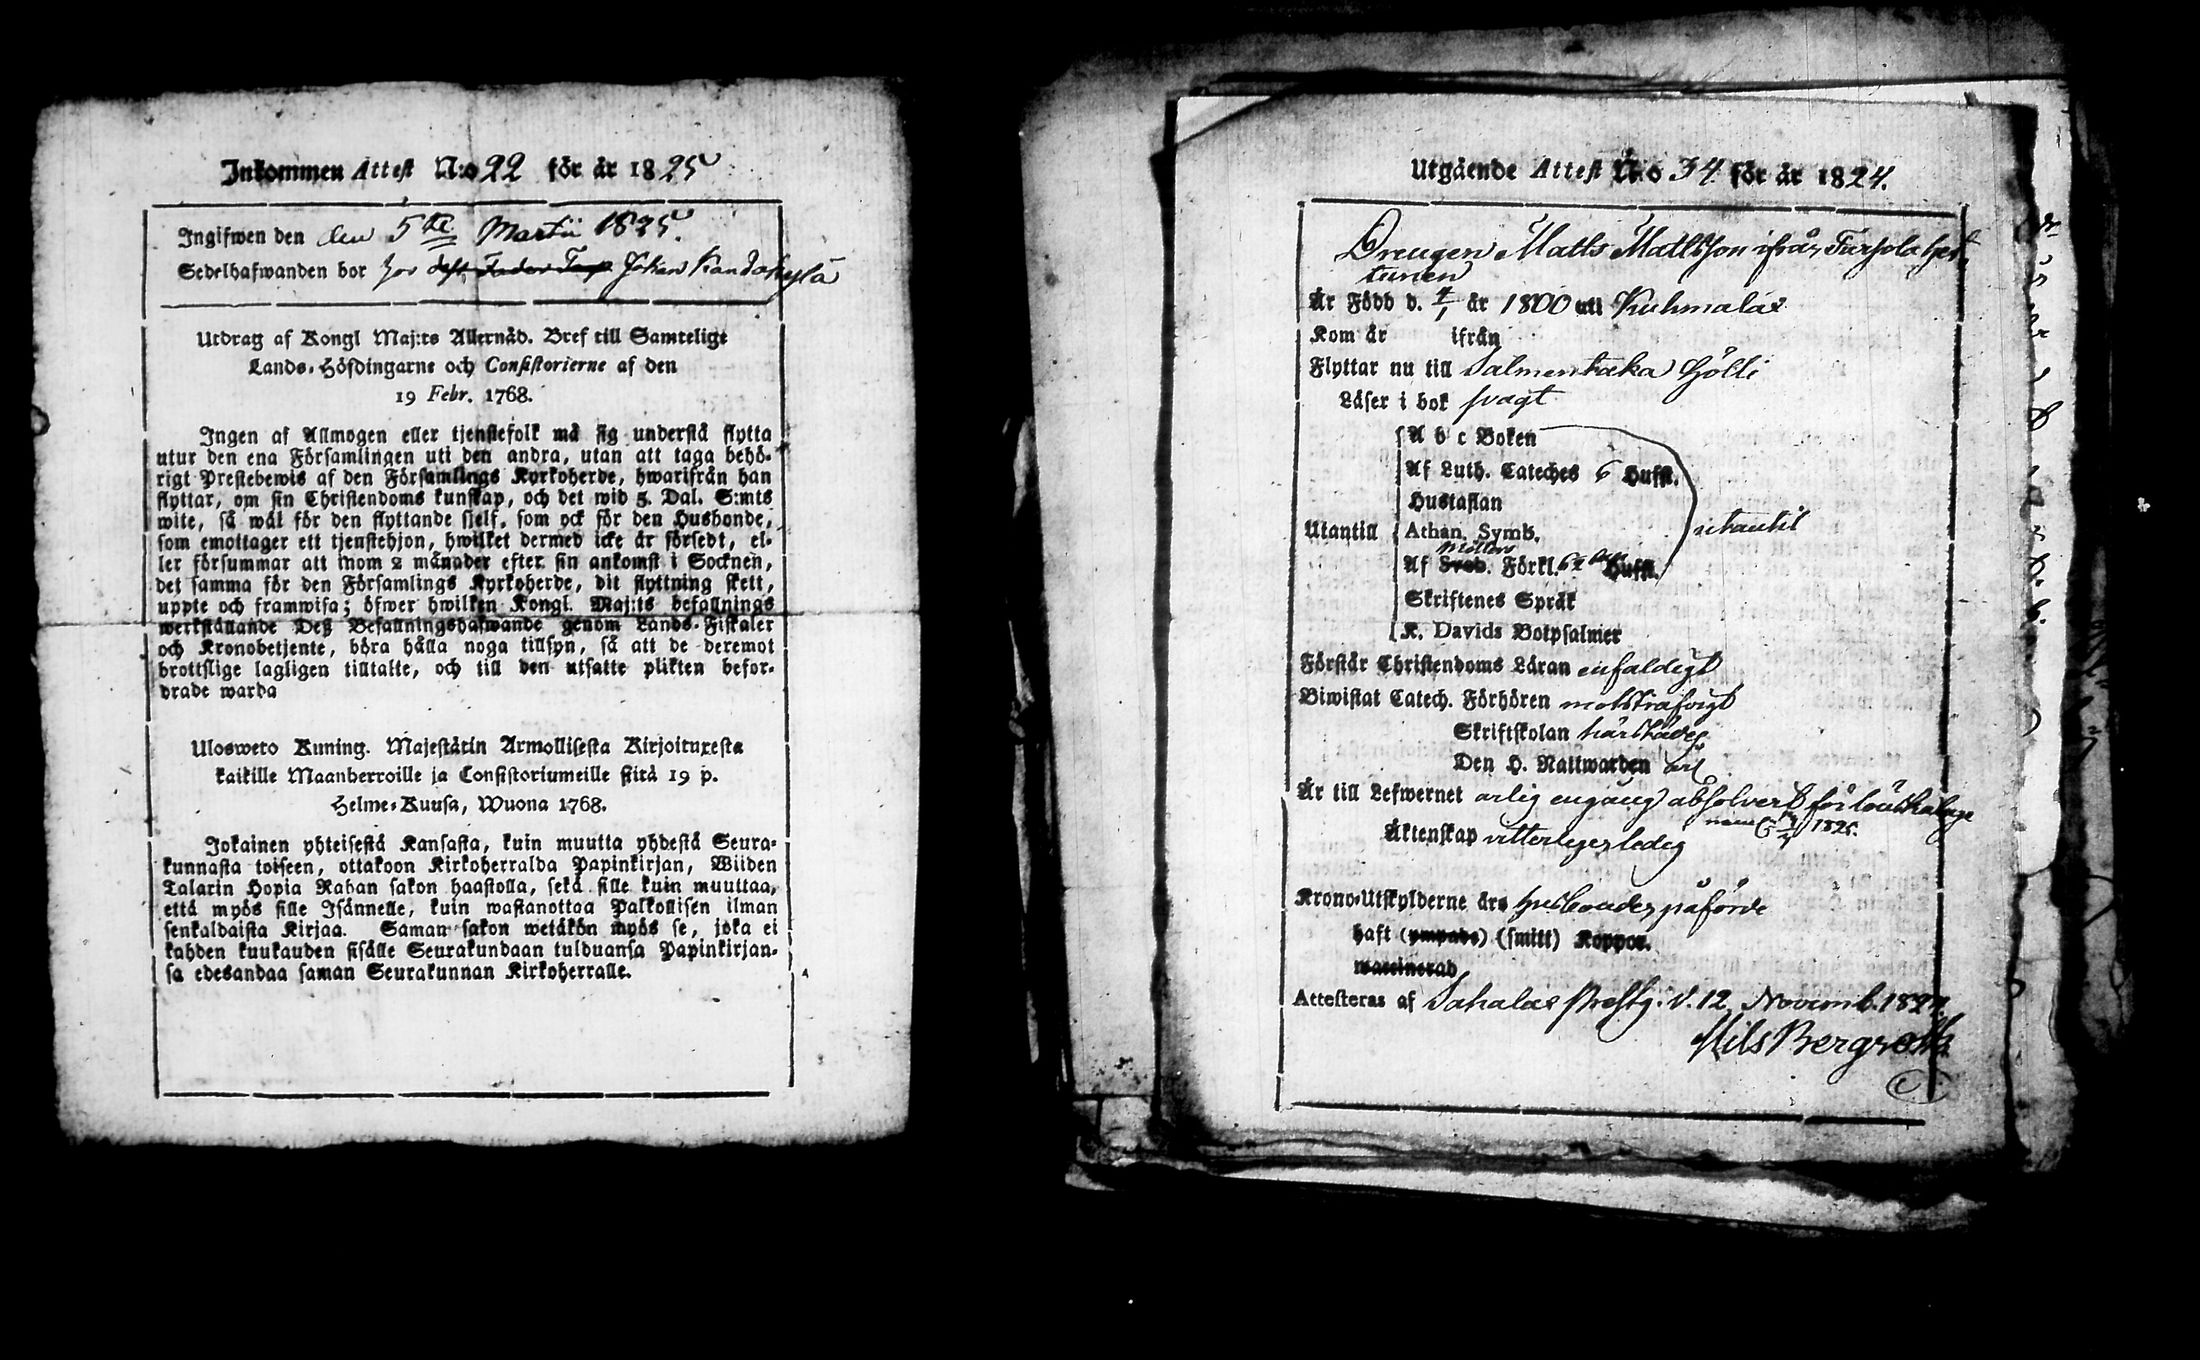 Inkommen Attest N:o 22 för år 1825
Ingifwen den den 5te Martii 1825.
Sedelhafwanden bor hos Johan Kandokylä
Utdrag af Kongl Maj:ts Allernåd. Bref till Samtelige
Lands-Höfdingarne och Consistorierne af den
19 Febr. 1768.
Ingen af Allmogen eller tjenstefolk må sig understå flytta
utur den ena Församlingen uti den andra, utan att taga behö-
rigt Prestebewis af den Församlings Kyrkoherde, hwarifrån han
flyttar, om sin Christendoms kunskap, och det wid 5. Dal. S:mts
wite, så wäl för den flyttande sjelf, som ock för den Husbonde,
som emottager ett tjenstehjon, hwilket dermed icke är försedt, el-
ler försummar att inom 2 månader efter sin ankomst i Socknen,
det samma för den Församlings Kyrkoherde, dit flyttning skett,
uppte och framwisa; öfwer hwilken Kongl. Maj:ts befallnings
werkställande Deß Befallningshafwande genom Lands-Fiskaler
och Kronobetjente, böra hålla noga tillsyn, så att de deremot
brottslige lagligen tilltalte, och till den utsatte plikten befor-
drade warda
Ulosweto Kuning. Majestätin Armollisesta Kirjoituxesta
kaikille Maanherroille ja Consistoriumeille siitä 19 p.
Helme-Kuusa, Wuona 1768.
Jokainen yhteisestä Kansasta, kuin muutta yhdestä Seura-
kunnasta toiseen, ottakoon Kirkoherralda Papinkirjan, Wiiden
Talarin Hopia Rahan sakon haastolla, sekä sille kuin muuttaa,
että myös sille Isännelle, kuin wastanottaa Palkollisen ilman
senkaldaista Kirjaa. Saman sakon wetäkön myös se, joka ei
kahden kuukauden sisälle Seurakundaan tulduansa Papinkirjan-
sa edesandaa saman Seurakunnan Kirkoherralle.
Utgående Attest N:o 34 för år 1824.
Drengen Matts Mattsson ifrån Tursola
Är Född d. 4/1 år 1800 uti Kuhmalax
Kom år ifrån
Flyttar nu till Salmentaka
Läser i bok svagt
A b c Boken
Af Luth. Cateches 6 Hufst.
Hustaflan
Utantill Athan. Symb. utantil
Af Sveb. Förkl. Hufst.
Skriftenes Språk
K. Davids Botpsalmer
Förstår Christendoms Läran enfaldigt
Biwistat Catech. Förhören
Skriftskolan härstädes
Den H. Nattwarden
Är till Lefwernet ärlig engång absolverd för
1825.
Äktenskap vitterligen ledig
Krono-Utskylderne äro husbonden påförde
haft (ympade) (smitt) Koppor.
waccinerad
Attesteras af Sahalax Prestg. d. 12 Novemb. 1824.
Nils Bergroth